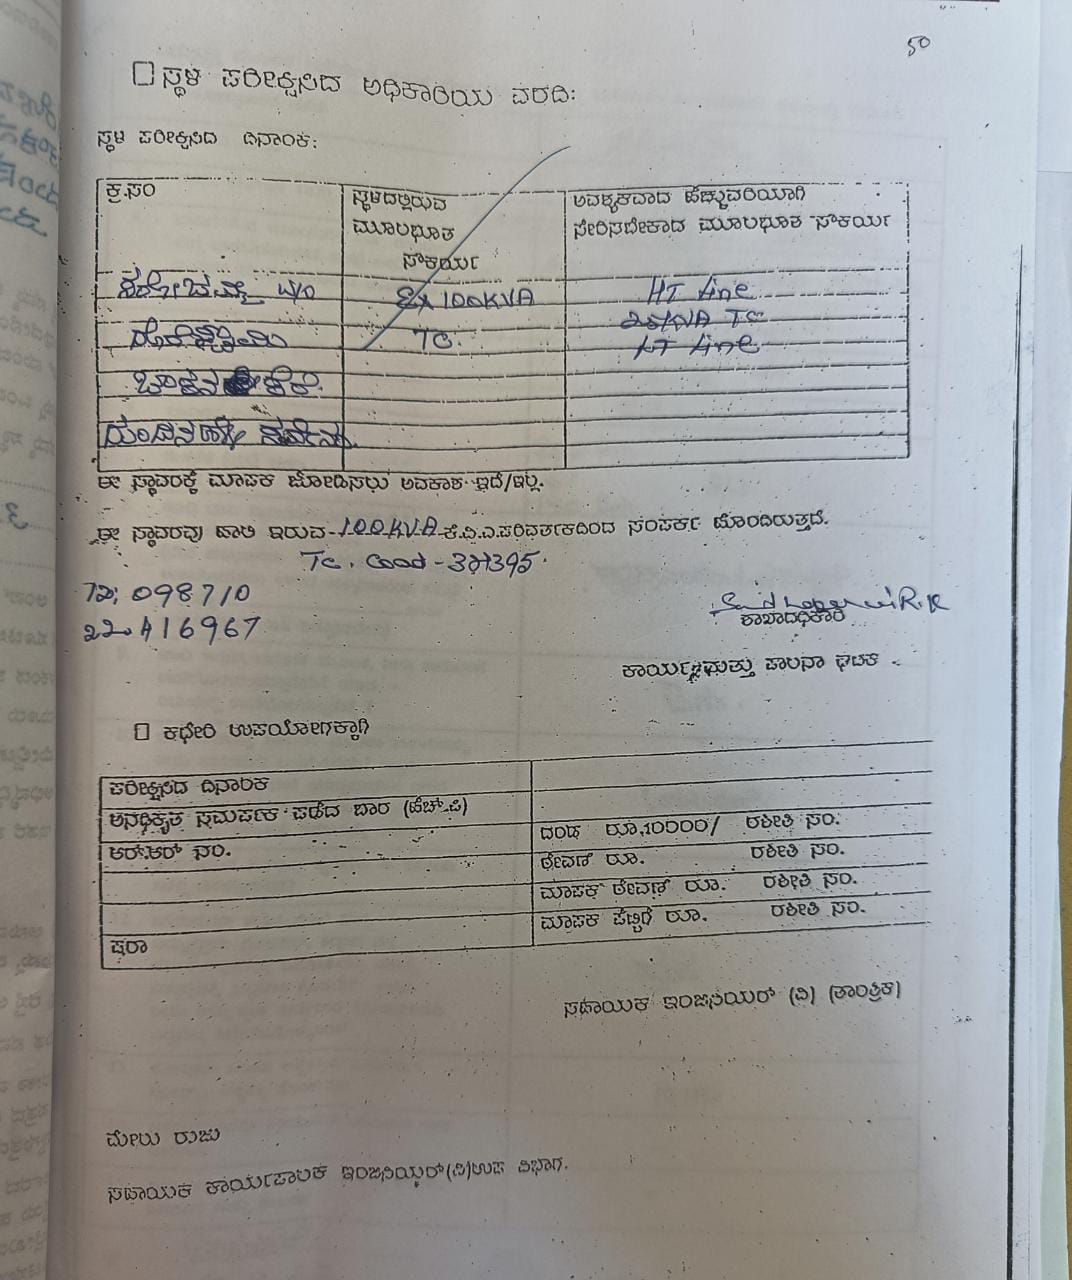 50
ಸ್ಥಳ ಪರೀಕ್ಷಿಸಿದ ಅಧಿಕಾರಿಯ ವರದಿ:
ಸ್ಥಳ ಪರೀಕ್ಷಿಸಿದ ದಿನಾಂಕ:
ಕ್ರ.ಸಂ
ಸ್ಥಳದಲ್ಲಿರುವ
ಮೂಲಭೂತ
ಸೌಕರ್ಯ
ಅವಶ್ಯಕವಾದ ಹೆಚ್ಚುವರಿಯಾಗಿ
ಸೇರಿಸಬೇಕಾದ ಮೂಲಭೂತ ಸೌಕರ್ಯ
W/O
100KVA
HT Line
TC.
25KVA TC
LT Line
ಈ ಸ್ಥಾವರಕ್ಕೆ ಮಾಪಕ ಜೋಡಿಸಲು ಅವಕಾಶ ಇದೆ/ಇಲ್ಲ.
ಈ ಸ್ಥಾವರವು ಹಾಲಿ ಇರುವ-100KVA-ಕೆ.ವಿ.ಎ.ಪರಿವರ್ತಕದಿಂದ ಸಂಪರ್ಕ ಹೊಂದಿರುತ್ತದೆ.
Tc. Cood -
098710
416967
ಶಾಖಾಧಿಕಾರಿ
ಕಾರ್ಯ ಮತ್ತು ಪಾಲನಾ ಘಟಕ
ಕಛೇರಿ ಉಪಯೋಗಕ್ಕಾಗಿ
ಪರೀಕ್ಷಿಸಿದ ದಿನಾಂಕ
ಅನಧಿಕೃತ ಸಮರ್ಪಕ ಪಡೆದ ಬಾರ (ಹೆಚ್.ಪಿ)
ದಂಡ ರೂ,10000/ ರಶೀತಿ ಸಂ.
ಆರ್.ಆರ್ ಸಂ.
ಠೇವಣಿ ರೂ. ರಶೀತಿ ಸಂ.
ಮಾಪಕ ಠೇವಣಿ ರೂ. ರಶೀತಿ ಸಂ.
ಮಾಪಕ ಪೆಟ್ಟಿಗೆ ರೂ. ರಶೀತಿ ಸಂ.
ಷರಾ
ಸಹಾಯಕ ಇಂಜಿನಿಯರ್ (ವಿ) (ತಾಂತ್ರಿಕ)
ಮೇಲು ರುಜು
ಸಹಾಯಕ ಕಾರ್ಯಪಾಲಕ ಇಂಜಿನಿಯರ್(ವಿ)ಉಪ ವಿಭಾಗ.